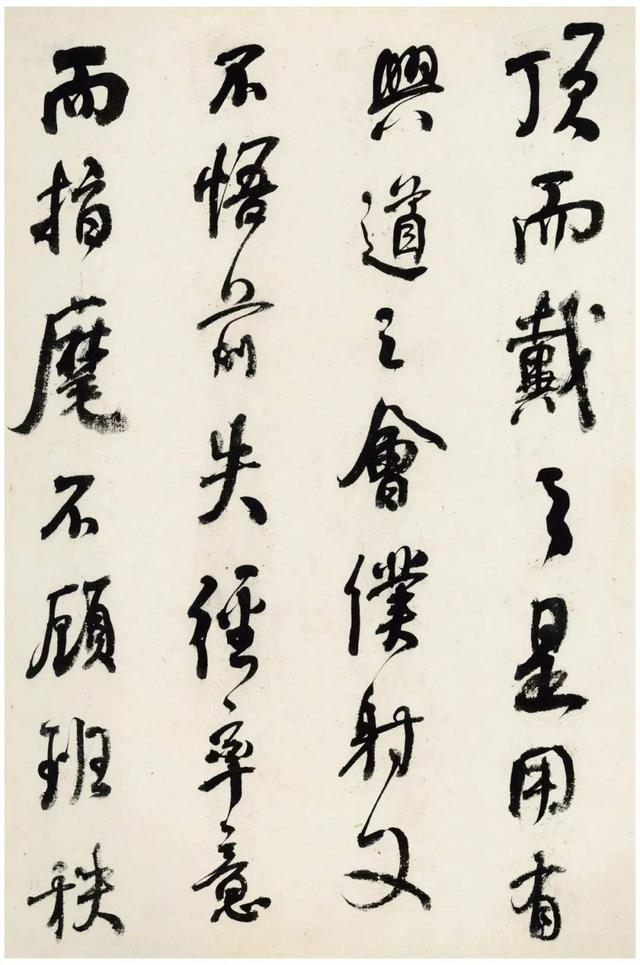 頂而戴之是用有
興道之會僕射又
不悟前失徑率意
而指麾不顧班秩